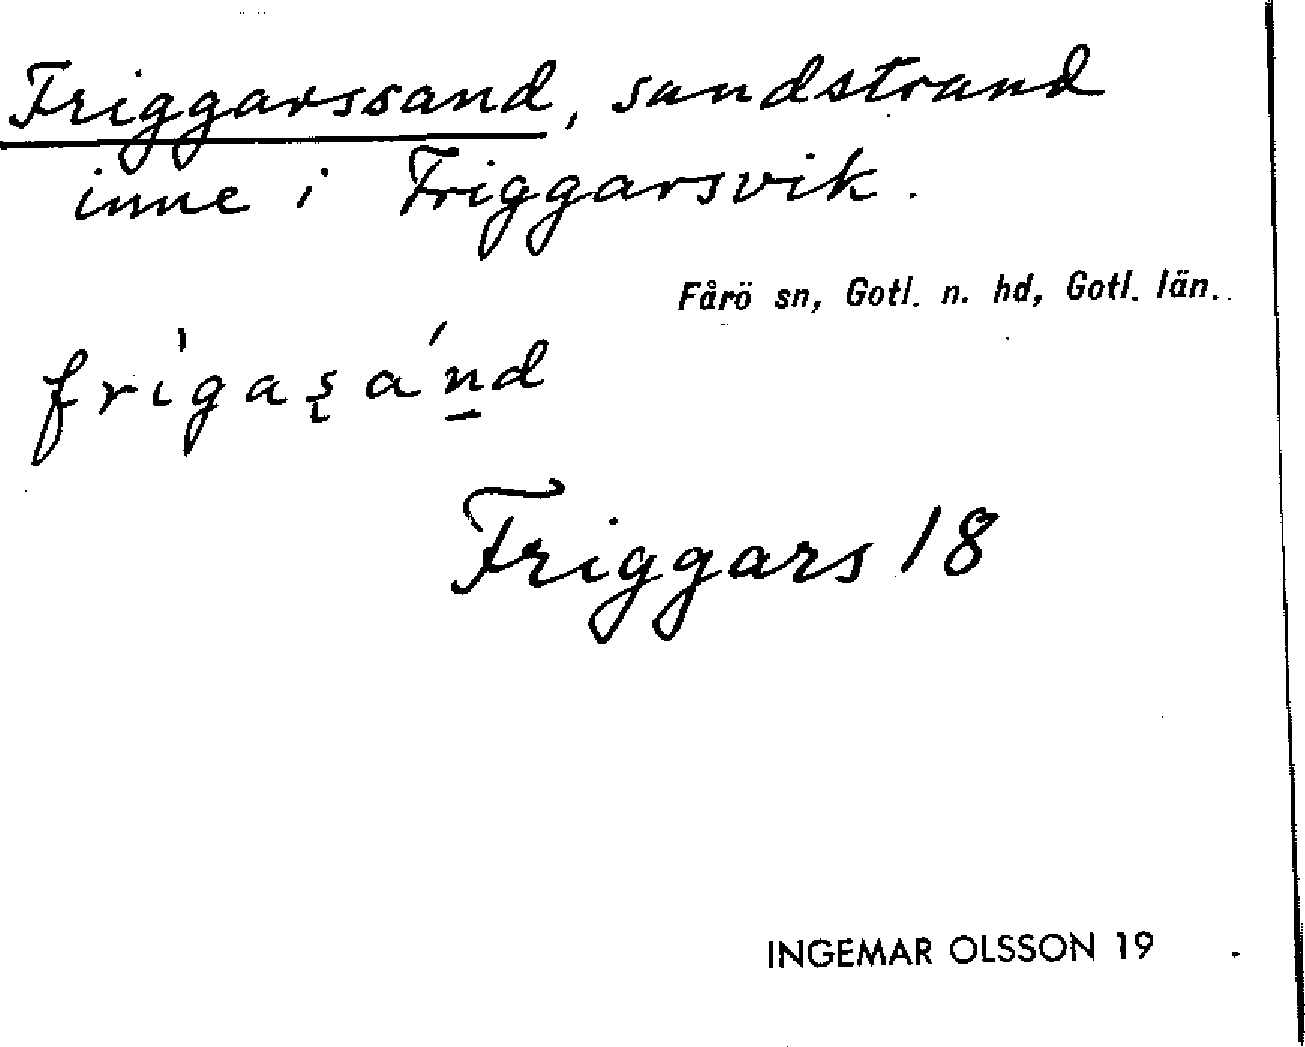 Friggarssand, sandstrand
inne i Friggarsvik.
Fårö sn, Gotl. n. hd, Gotl. län.
frìgaʂánd
Friggars 18
INGEMAR OLSSON 19